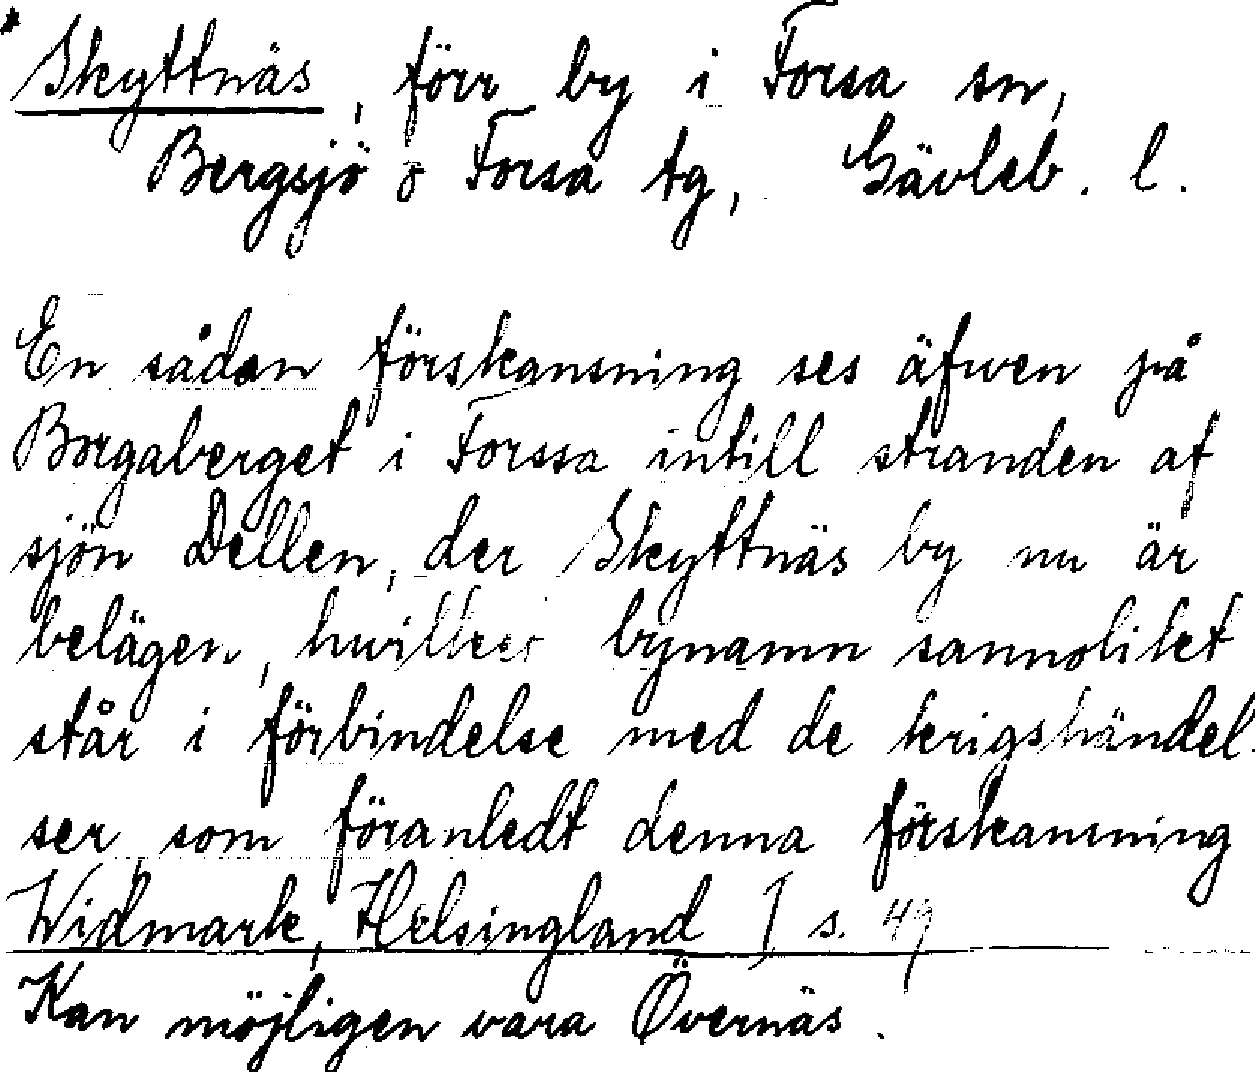 * Skyttnäs, förr by i Forsa sn,
Bergsjö o Forsa tg, Gävleb. l.
En sådan förskansning ses äfwen på
Borgaberget i Forssa intill stranden af
sjön Dellen, der Skyttnäs by nu är
belägen, hwilket bynamn sannolikt
står i förbindelse med de krigshändel-
ser, som föranledt denna förskansning
Widmark, Helsingland I s. 49
Kan möjligen vara Övernäs.